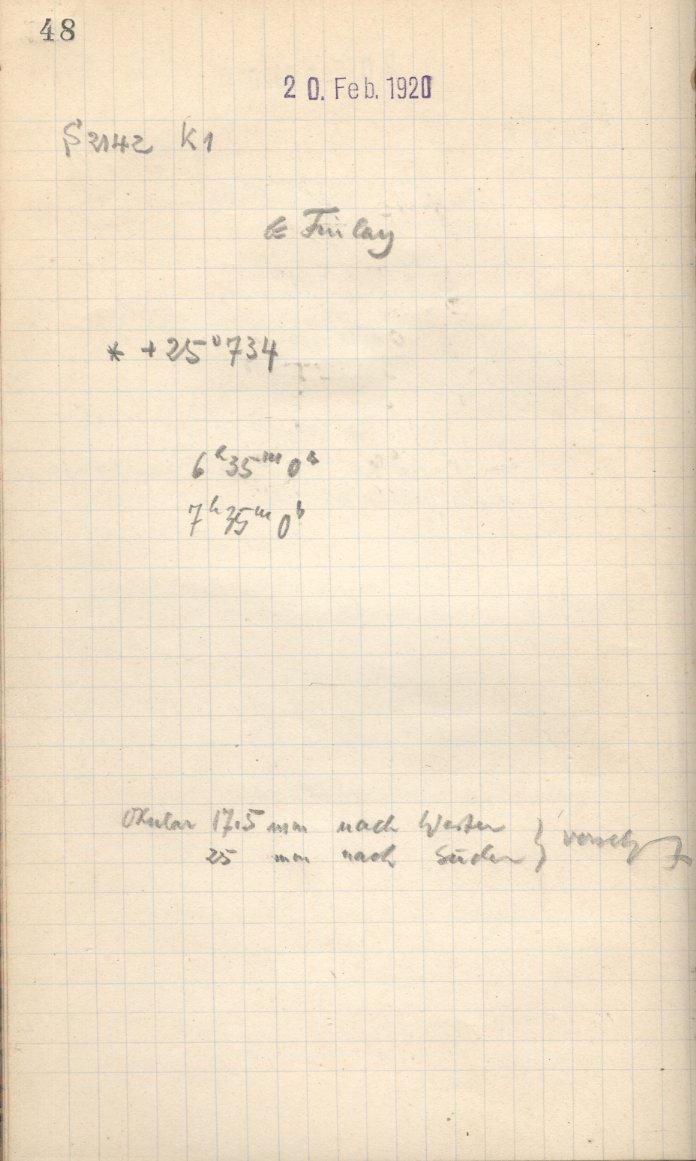 48
20. Feb. 1920
S 2142 K1
Finlay
* +25°734
6ʰ35ᵐ0ˢ
7ʰ35ᵐ0ˢ
Okular 17.5 mm nach Westen
25 mm nach Süden }